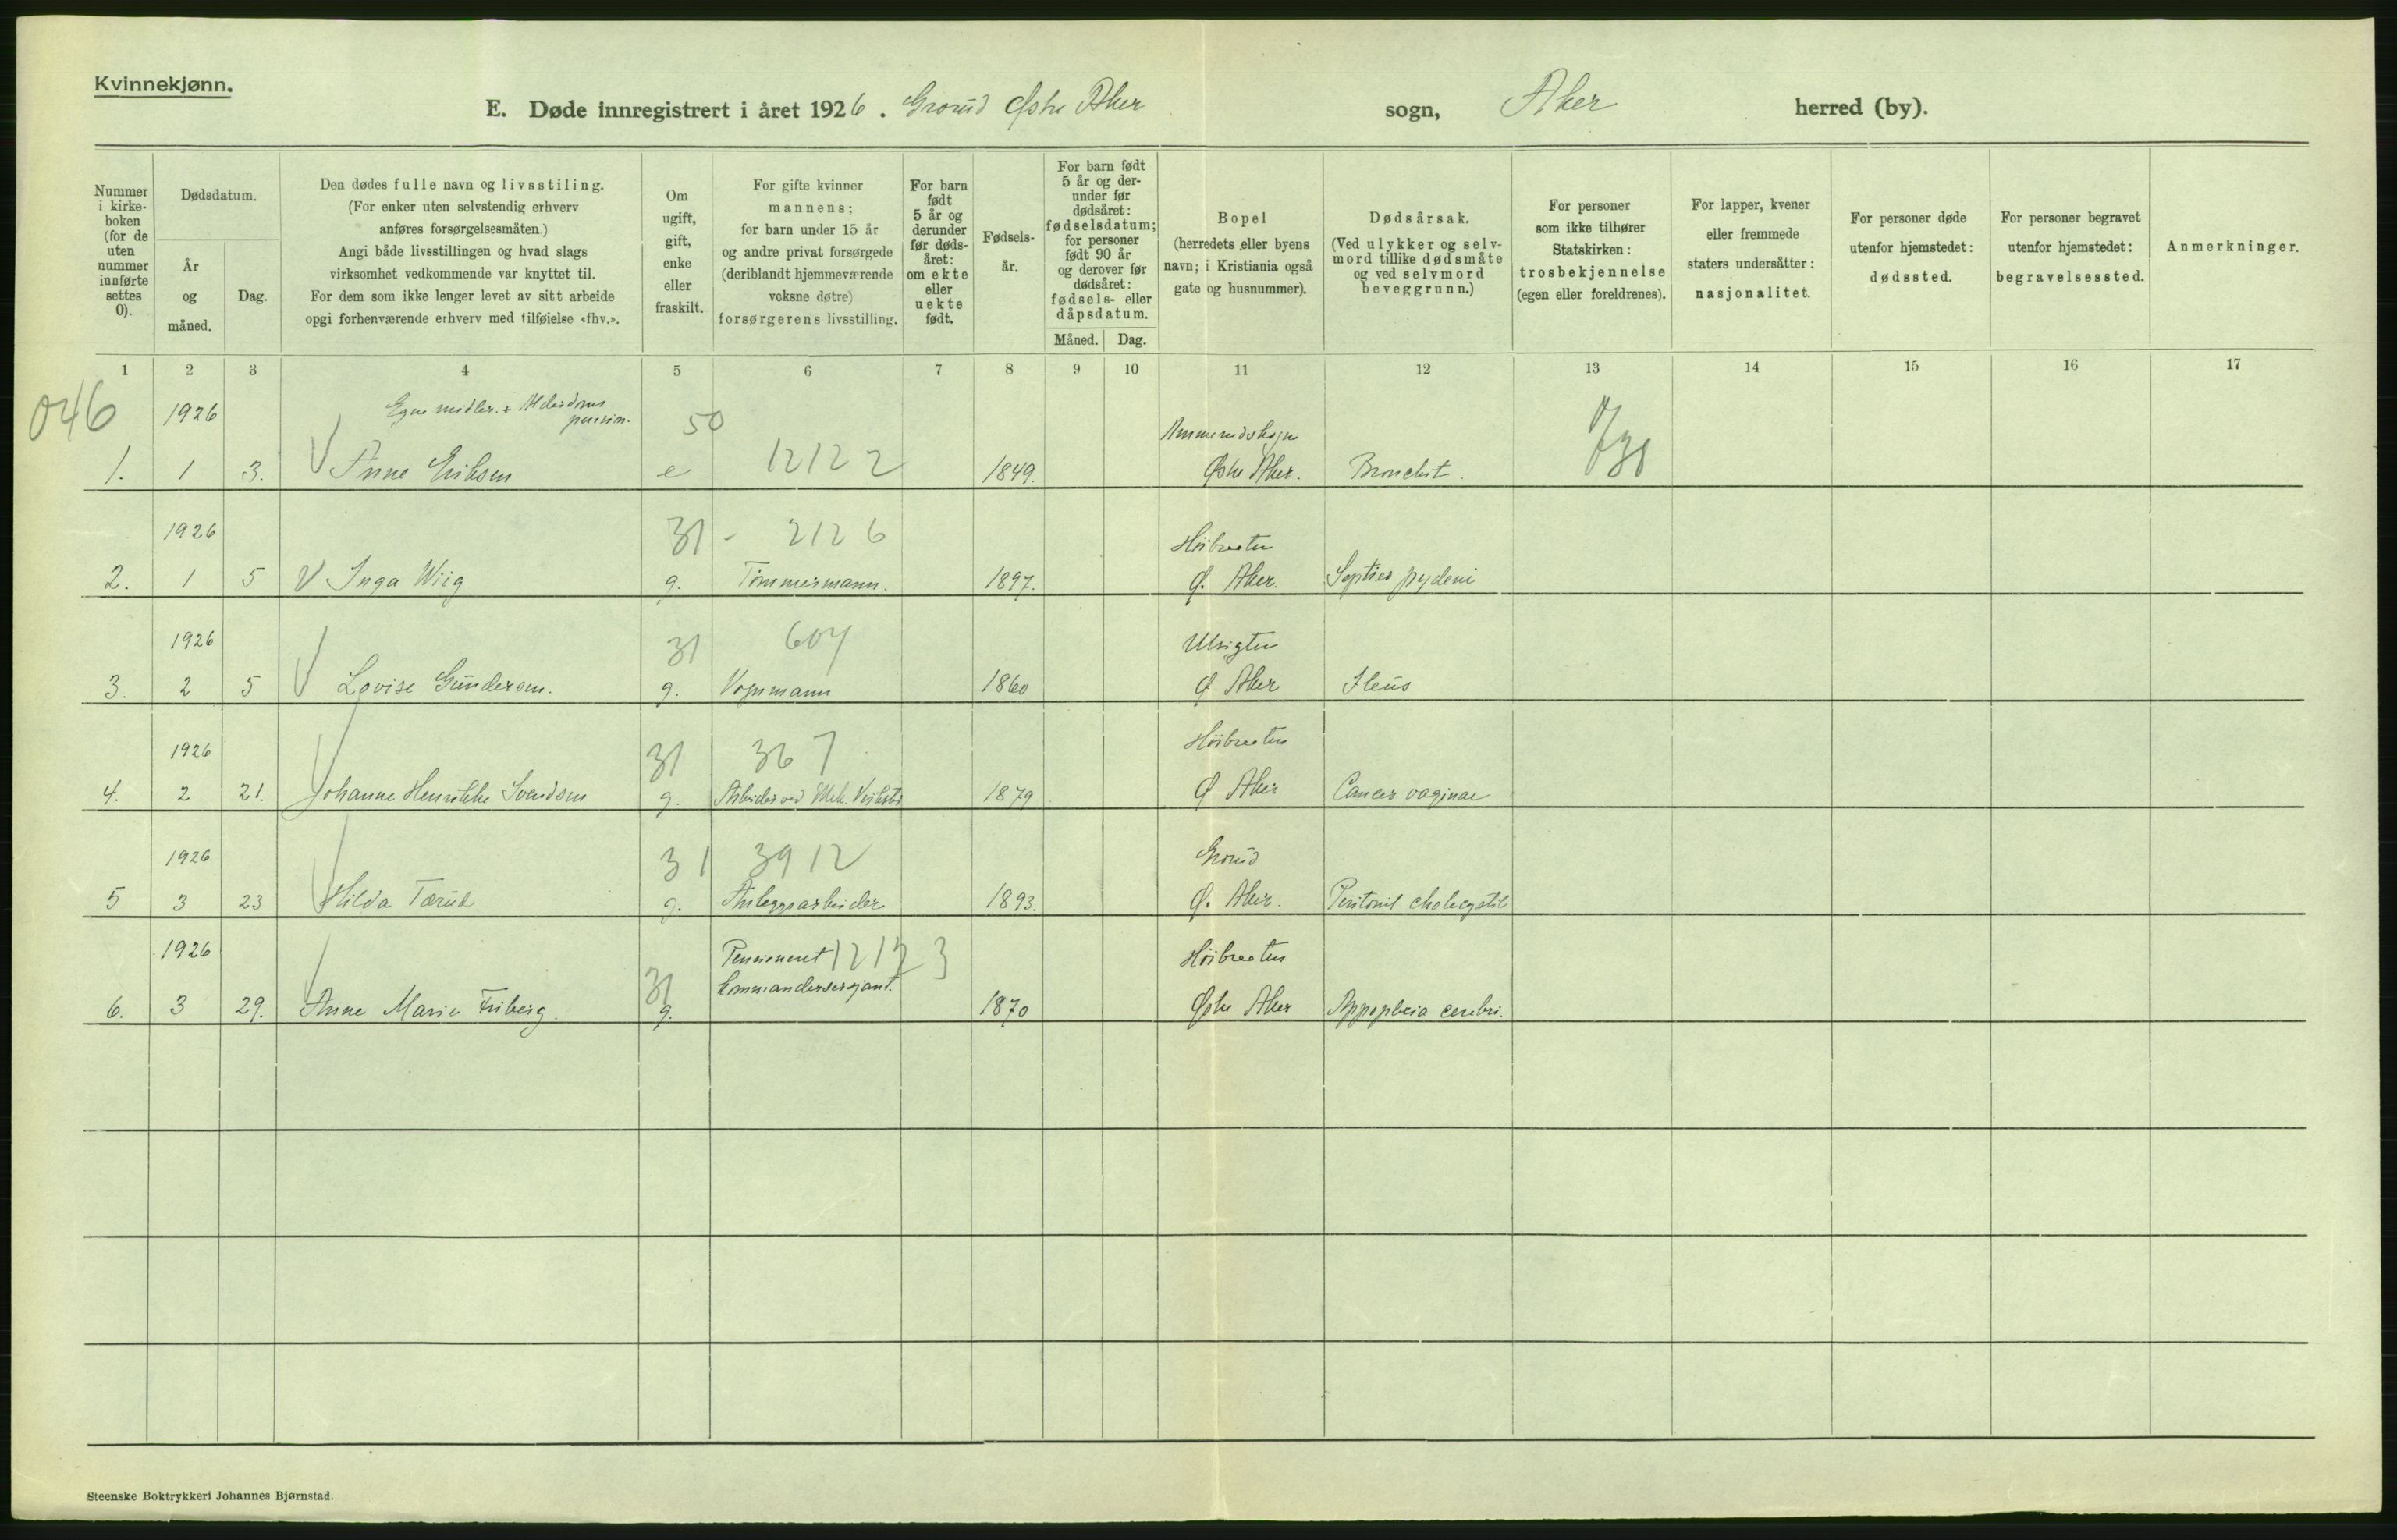 Kvinnekjønn.
E. Døde innregistrert i året 1926. Grorud Østre Aker sogn, Aker herred (by).
Nummer i kirke-boken (for de uten nummer innførte settes 0).
Dødsdatum.
År og måned.
Dag.
Den dødes fulle navn og livsstiling.
(For enker uten selvstendig erhverv
anføres forsørgelsesmåten.)
Angi både livsstillingen og hvad slags
virksomhet vedkommende var knyttet til.
For dem som ikke lenger levet av sitt arbeide
opgi forhenværende erhverv med tilføielse «fhv.».
Om ugift, gift, enke eller fraskilt.
For gifte kvinner
mannens;
for barn under 15 år
og andre privat forsørgede
(deriblandt hjemmeværende
voksne døtre)
forsørgerens livsstilling.
For barn født 5 år og derunder før døds-året: om ekte eller uekte født.
Fødsels-år.
For barn født 5 år og der-under før dødsåret: fødselsdatum; for personer født 90 år og derover før dødsåret: fødsels- eller dåpsdatum.
Måned. Dag.
Bopel
(herredets eller byens
navn; i Kristiania også
gate og husnummer).
Dødsårsak.
(Ved ulykker og selv-
mord tillike dødsmåte
og ved selvmord
beveggrunn.)
For personer
som ikke tilhører
Statskirken:
trosbekjennelse
(egen eller foreldrenes).
For lapper, kvener
eller fremmede
staters undersåtter:
nasjonalitet.
For personer døde
utenfor hjemstedet:
dødssted.
For personer begravet
utenfor hjemstedet:
begravelsessted.
Anmerkninger.
1 2 3 4 5 6 7 8 9 10 11 12 13 14 15 16 17
046 1926 Egne midler + Alderdoms 50
1. 1 3. Anne Eriksen e 12122 1849. Østre Aker. Bronchit.
1926 31 - 2126 Høibraaten
2. 1 5 Inga Wiig g. Tømmermann. 1897. Ø. Aker.
1926 31 604
3. 2 5 Lovise Gundersen. g. Vognmann 1860 Ø Aker Ileus
1926 31 367 Høibraaten
4. 2 21. Johanne Henrikke Svendsen g. Arbeider ved Mek. Verksted 1879 Ø Aker Cancer vaginae
1926 31 3912 Grorud
5 3 23 Hilda Tærud g. Anleggsarbeider 1893. Ø. Aker. Peritonit cholecystit
1926 31 Pensioneret 12123 Høibraaten
Kommandersersjant.
6. 3 29. Anne Marie Friberg. g. 1870 Østre Aker Appoplexia cerebri.
Steenske Boktrykkeri Johannes Bjørnstad.